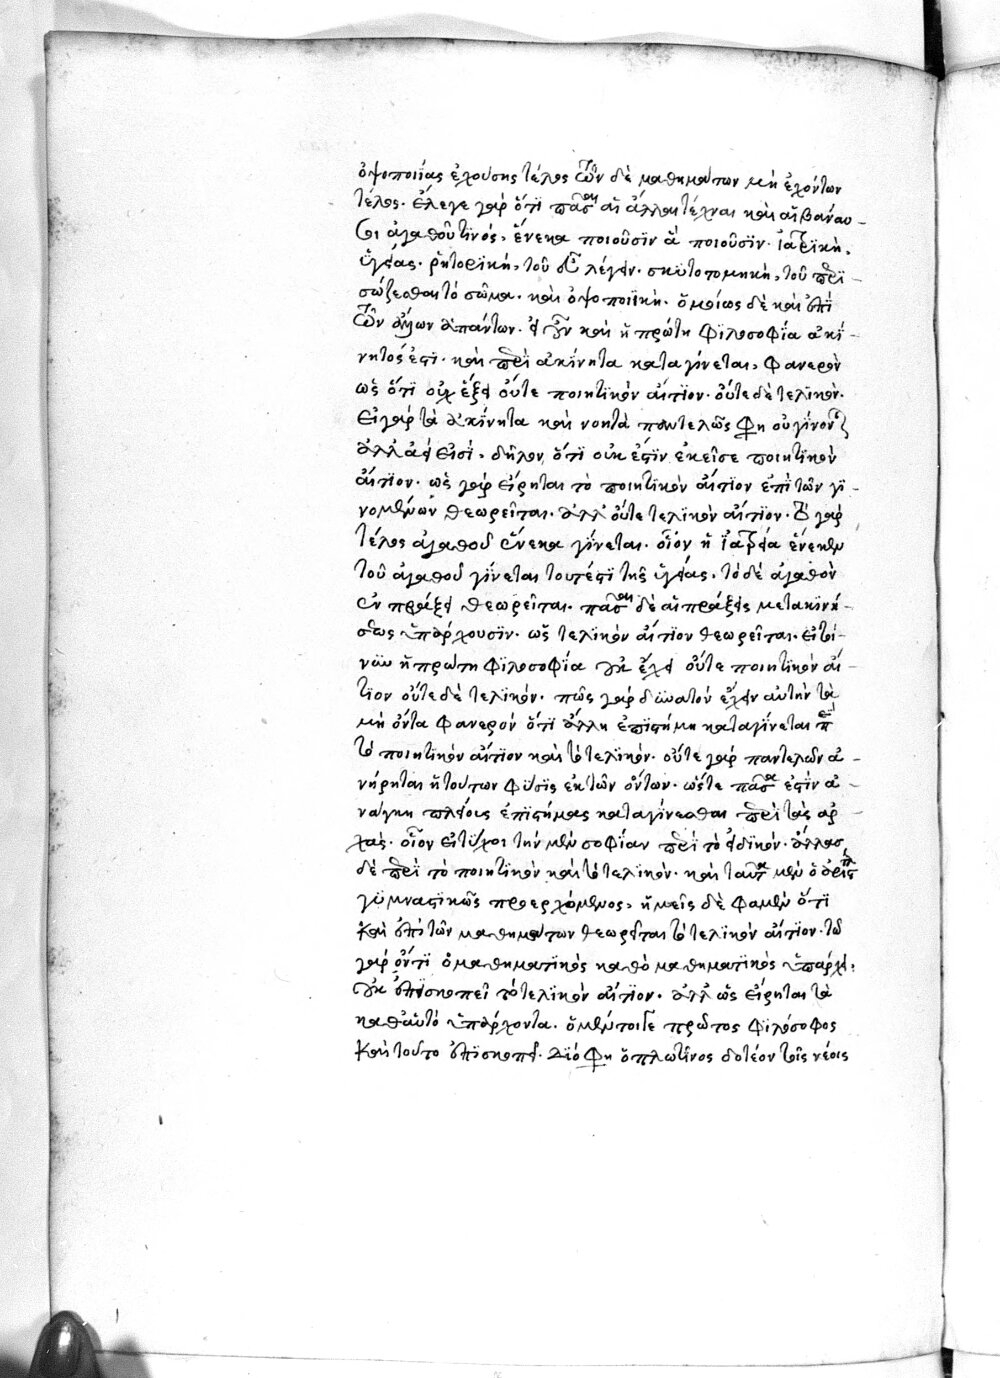 ὀψοποιΐας ἐχούσης τέλος τῶν δὲ μαθημάτων μὴ ἐχόντων
τέλος· ἔλεγε γὰρ ὅτι πᾶσαι αἱ ἄλλαι τέχναι καὶ αἱ βάναυ-
σοι ἀγαθοῦ τινός, ἕνεκα ποιοῦσιν ἃ ποιοῦσιν· ἰατρικὴ,
ὑγείας· ῥητορικὴ, τοῦ εὖ λέγειν· σκυτοτομικὴ, τοῦ περι-
σώζεσθαι τὸ σῶμα· καὶ ὀψοποιϊκὴ· ὁμοίως δὲ καὶ ἐπὶ
τῶν ἄλλων ἁπάντων· εἰ οὖν καὶ ἡ πρώτη φιλοσοφία ἀκί-
νητός ἐστι· καὶ περὶ ἀκίνητα καταγίνεται, φανερὸν
ὡς ὅτι οὐχ ἕξει οὔτε ποιητικὸν αἴτιον· οὔτε δὲ τελικόν·
εἰ γὰρ τὰ ἀκίνητα καὶ νοητὰ παντελῶς φησὶ οὐ γίνονται
ἀλλ' ἀεὶ εἰσί· δῆλον ὅτι οὐκ ἔστιν ἐκεῖσε ποιητικὸν
αἴτιον· ὡς γὰρ εἴρηται τὸ ποιητικὸν αἴτιον ἐπὶ τῶν γι-
νομένων θεωρεῖται· ἀλλ' οὔτε τελικὸν αἴτιον· τὸ γὰρ
τέλος ἀγαθοῦ ἕνεκα γίνεται· οἷον ἡ ἰατρεία ἕνεκεν
τοῦ ἀγαθοῦ γίνεται τουτέστι τῆς ὑγείας· τὸ δὲ ἀγαθὸν
ἐν πράξει θεωρεῖται· πᾶσαι δὲ αἱ πράξεις μετὰ κινή-
σεως ὑπάρχουσιν· ὡς τελικὸν αἴτιον θεωρεῖται· εἰ τοί-
νυν ἡ πρώτη φιλοσοφία οὐκ ἔχει οὔτε ποιητικὸν αἴ-
τιον οὔτε δὲ τελικόν· πῶς γὰρ δυνατὸν ἔχειν αὐτὴν τὰ
μὴ ὄντα φανερὸν ὅτι ἄλλη ἐπιστήμη καταγίνεται περὶ
τὸ ποιητικὸν αἴτιον καὶ τὸ τελικόν· οὔτε γὰρ παντελῶν ἀ-
νήρηται ἡ τούτων φύσις ἐκ τῶν ὄντων· ὥστε πᾶσα ἐστὶν ἀ-
νάγκη πλείους ἐπιστήμας καταγίνεσθαι περὶ τὰς ἀρ-
χάς· οἷον εἰ τύχοι τὴν μὲν σοφίαν περὶ τὸ εἰδικόν· ἄλλας
δὲ περὶ τὸ ποιητικὸν καὶ τὸ τελικόν· καὶ ταῦτα μὲν ὁ ἀριστοτέλης
γυμναστικῶς προερχόμενος, ἡμεῖς δὲ φαμὲν ὅτι
καὶ ἐπὶ τῶν μαθημάτων θεωρεῖται τὸ τελικὸν αἴτιον· τῶ
γὰρ ὄντι ὁ μαθηματικὸς καθὸ μαθηματικὸς ὑπάρχει,
οὐκ ἐπισκοπεῖ τὸ τελικὸν αἴτιον· ἀλλ' ὡς εἴρηται τὰ
καθαὑτὸ ὑπάρχοντα· ὁ μέντοιγε πρῶτος φιλόσοφος
καὶ τοῦτο ἐπισκοπεῖ· διό φησι ὁ πλωτῖνος δοτέον τοῖς νέοις